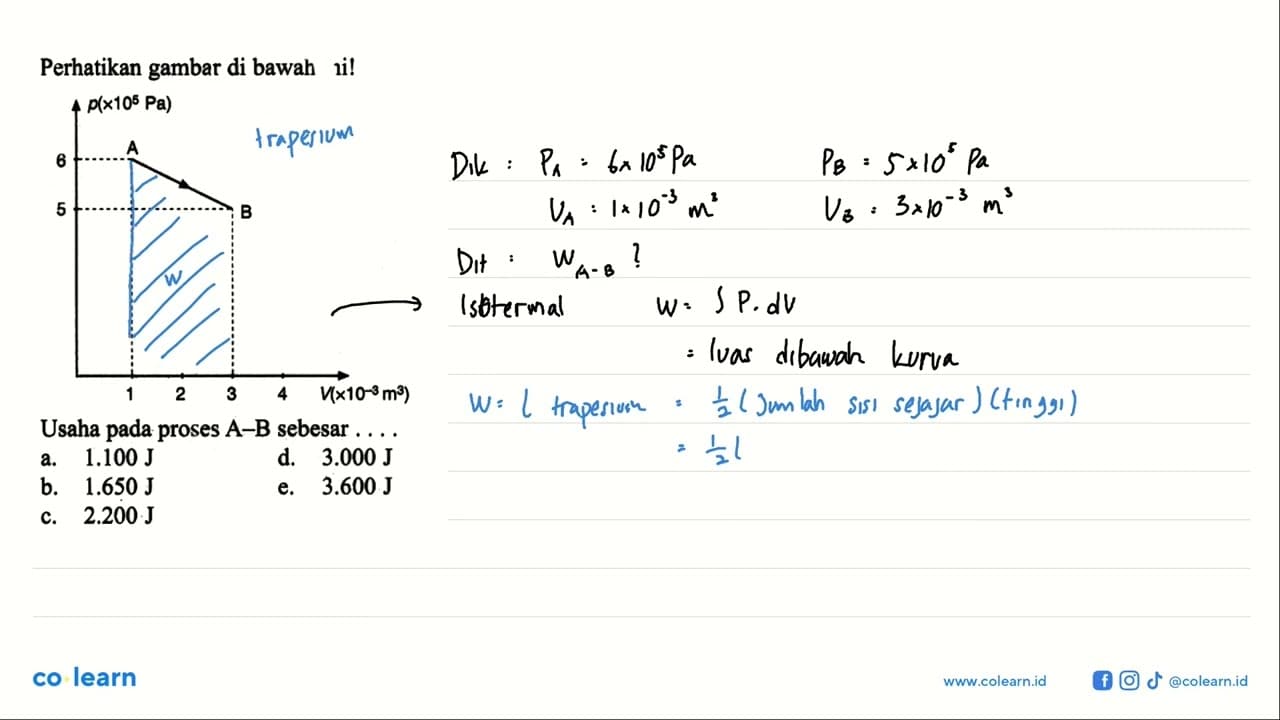 Perhatikan gambar di bawah ni!
p(×10⁵ Pa)
trapesium
6
A
5
B
W
1 2 3 4 V(×10⁻³ m³)
Usaha pada proses A–B sebesar . . . .
a. 1.100 J
b. 1.650 J
c. 2.200 J
d. 3.000 J
e. 3.600 J
Dik : PA = 6 × 10⁵ Pa PB = 5 × 10⁵ Pa
VA = 1 × 10⁻³ m³ VB = 3 × 10⁻³ m³
Dit : W A-B ?
Isotermal W = ∫ P. dV
= luas dibawah kurva
W = L trapesium = 1/2 (Jumlah sisi sejajar) (tinggi)
= 1/2 (
co learn
www.colearn.id
@colearn.id